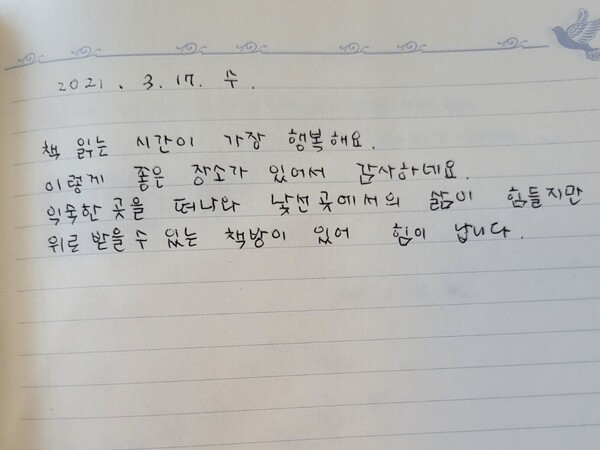 2021. 3. 17. 수.
책 읽는 시간이 가장 행복해요.
이렇게 좋은 장소가 있어서 감사하네요.
익숙한 곳을 떠나와 낯선 곳에서의 삶이 힘들지만
위로 받을 수 있는 책방이 있어 힘이 납니다.